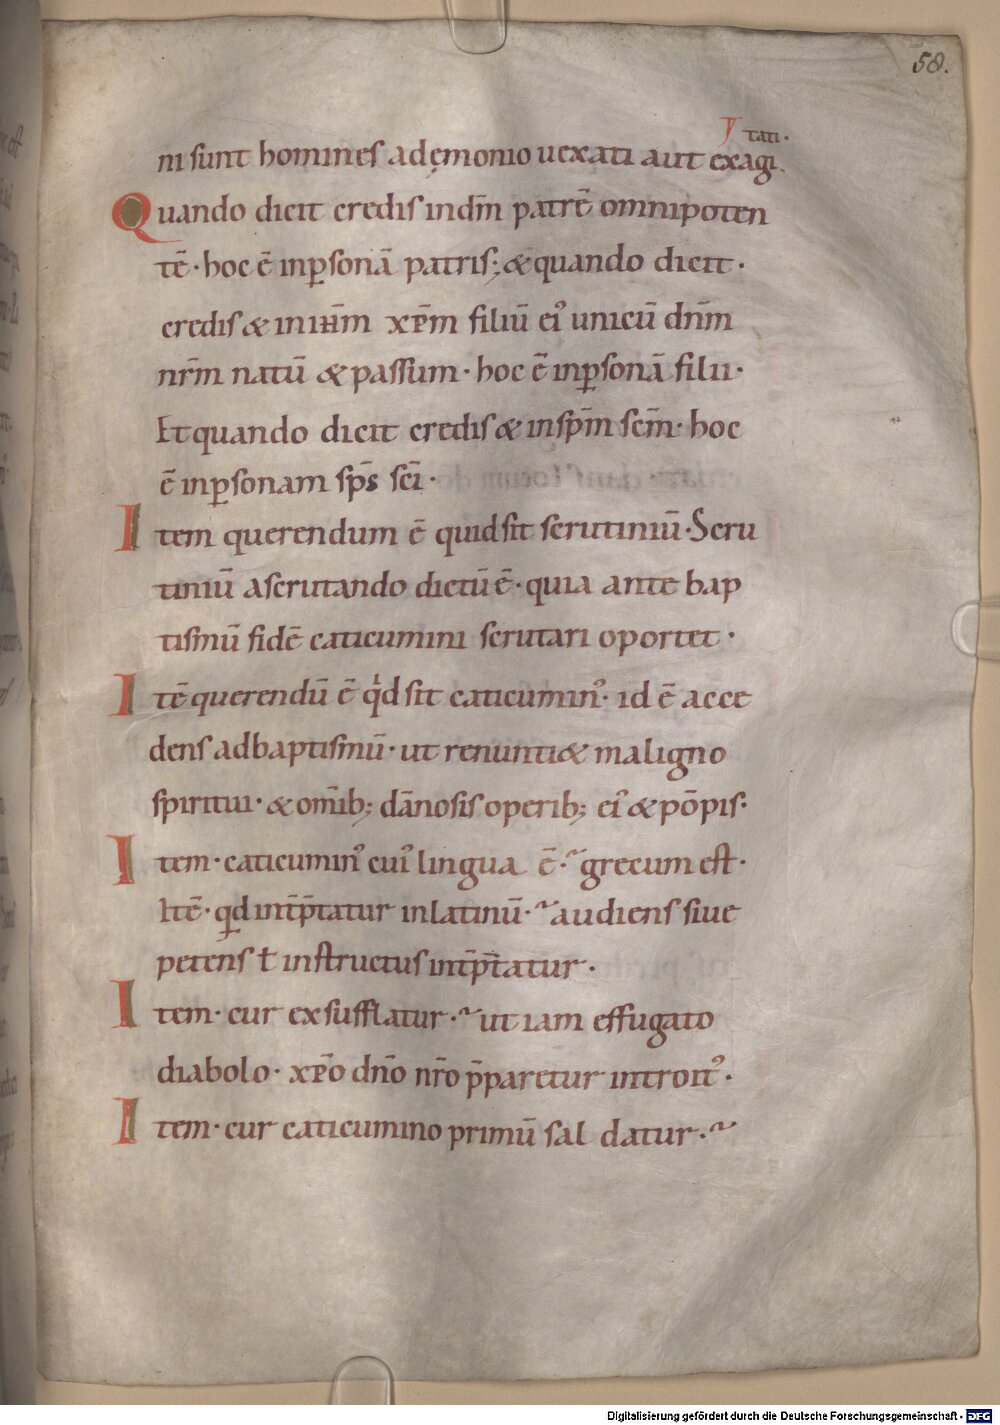 58.
tati·
ni sunt homines ad ęmonio uexati aut exagi
Quando dicit credis in dm̄ patrē omnipoten
tē· hoc ē in ꝑsonā patris; & quando dicit·
credis & in ihm̄ xp̄m filiū ei᾽ unicū dn̄m
nr̄m natū & passum· hoc ē in ꝑsonā filii·
Et quando dicit credis & in sp̄m sc̄m· hoc
ē in ꝑsonam sp̄s sc̄i·
Item querendum ē quid sit scrutiniū· Scru
tiniū a scrutando dictū ē· quia ante bap
tismū fidē caticumini scrutari oportet·
Itē querendū ē qd sit caticumin᾽· id ē acce
dens ad baptismū· ut renunti& maligno
spiritui· & om̄ib; dānosis operib; ei᾽ & pōpis·
Item· caticumin᾽ cui᾽ lingua ē·~ grecum est·
Itē· qd int̄p̄tatur in latinū·~ audiens siue
petens ł instructus int̄p̄tatur·
Item· cur exsufflatur·~ ut iam effugato
diabolo· xp̄o dn̄o nr̄o p̄paretur introit᾽·
Item· cur caticumino primū sal datur·~
Digitalisierung gefördert durch die Deutsche Forschungsgemeinschaft - DFG